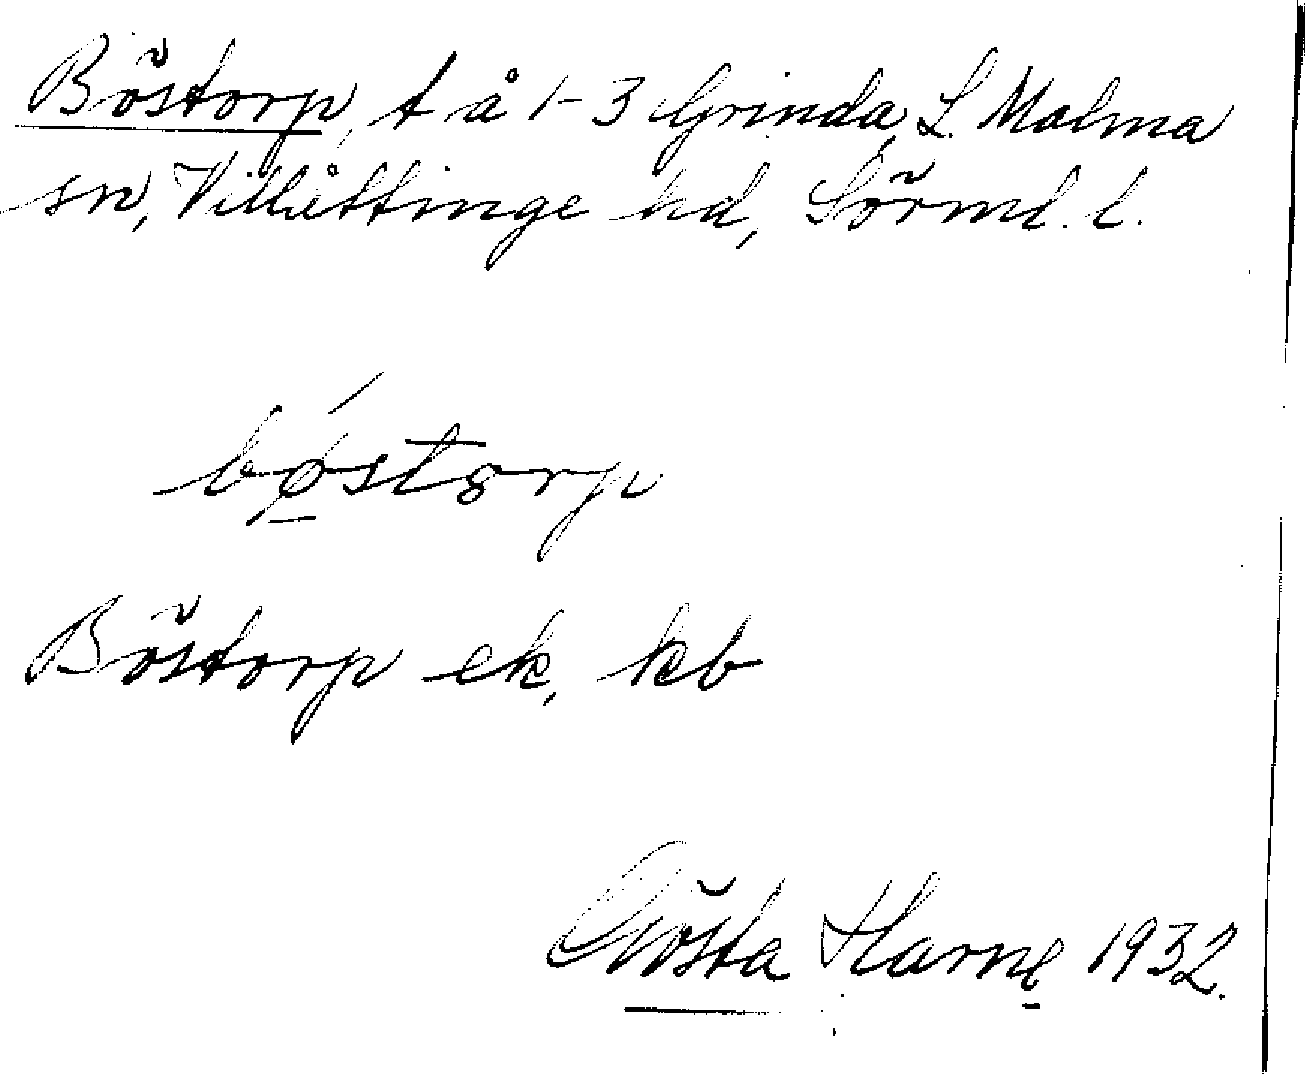 Böstorp, t å 1-3 Grinda, L. Malma
sn, Villåttinge hd, Sörml. l.
bǿstorp
Böstorp ek, kb
Gösta Harne 1932.